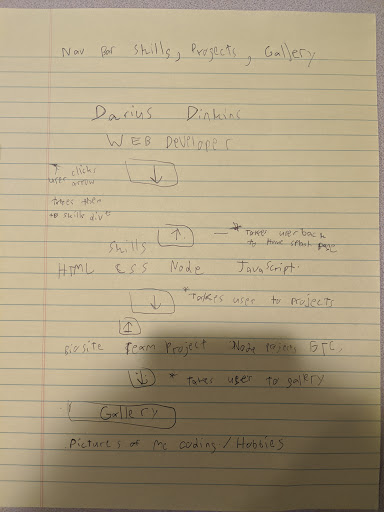 Nav Bar Skills, Projects, Gallery
Darius Dinkins
WEB Developer
* user clicks arrow
takes them to skills div
↓
↑ — * Takes user back to home splash page
Skills
HTML CSS Node JavaScript
↓ * Takes user to projects
↑
Biosite Team Project Node projects ETC.
↓ * Takes user to gallery
Gallery
Pictures of me coding / Hobbies